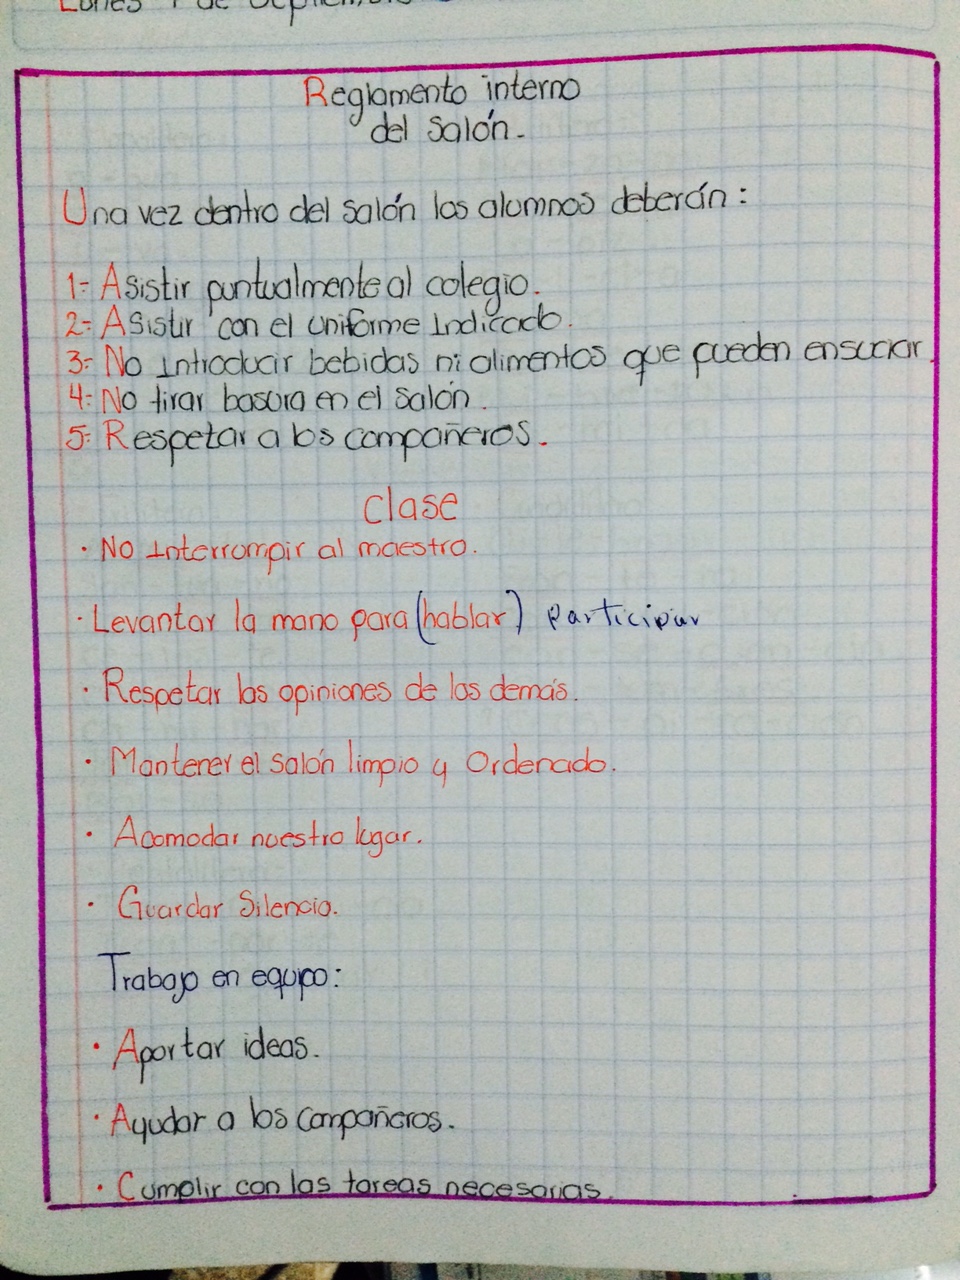 Lunes 1 de Septiembre
Reglamento interno
del salón.
Una vez dentro del salón los alumnos deberán:
1- Asistir puntualmente al colegio.
2- Asistir con el uniforme Indicado.
3- No Introducir bebidas ni alimentos que pueden ensuciar.
4- No tirar basura en el salón.
5- Respetar a los compañeros.
Clase
· No Interrumpir al maestro.
· Levantar la mano para (hablar) participar
· Respetar las opiniones de los demás.
· Mantener el salón limpio y Ordenado.
· Acomodar nuestro lugar.
· Guardar Silencio.
Trabajo en equipo:
· Aportar ideas.
· Ayudar a los compañeros.
· Cumplir con las tareas necesarias.